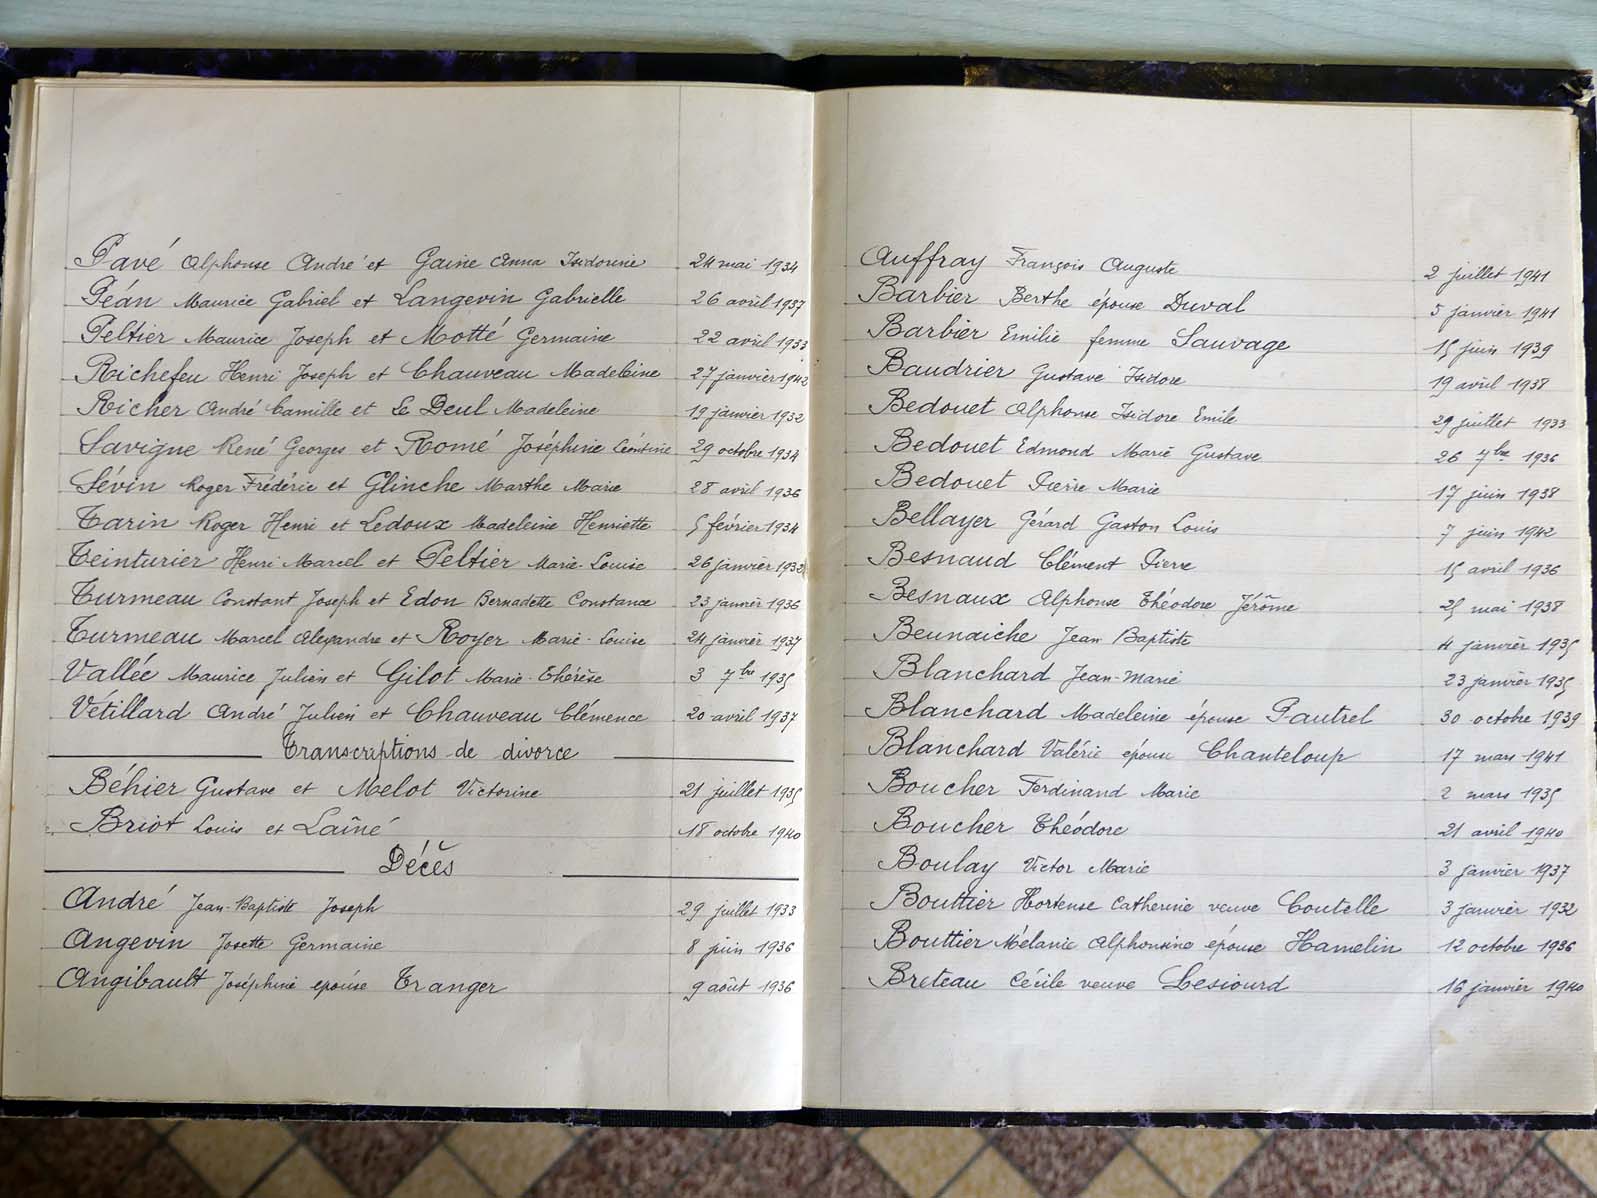 Pavé Alphonse André et Gaine Anna Isidorine 24 mai 1934
Péan Maurice Gabriel et Langevin Gabrielle 26 avril 1937
Peltier Maurice Joseph et Motté Germaine 22 avril 1933
Richefeu Henri Joseph et Chauveau Madeleine 27 janvier 1942
Richer André Camille et Le Deul Madeleine 19 janvier 1932
Savigne René Georges et Romé Joséphine Léontine 29 octobre 1934
Sévin Roger Frédéric et Glinche Marthe Marie 28 avril 1936
Tarin Roger Henri et Ledoux Madeleine Henriette 5 février 1934
Teinturier Henri Marcel et Peltier Marie-Louise 26 janvier 1932
Turmeau Constant Joseph et Edon Bernadette Constance 23 janvier 1936
Turmeau Marcel Alexandre et Royer Marie-Louise 24 janvier 1937
Vallée Maurice Julien et Gilot Marie-Thérèse 3 7bre 1935
Vétillard André Julien et Chauveau Clémence 20 avril 1937
Transcriptions de divorce
Béhier Gustave et Melot Victorine 21 juillet 1935
Briot Louis et Laîné 18 octobre 1940
Décès
André Jean-Baptiste Joseph 29 juillet 1933
Angevin Josette Germaine 8 juin 1936
Angibault Joséphine épouse Tranger 9 août 1936
Auffray François Auguste 2 juillet 1941
Barbier Berthe épouse Duval 5 janvier 1941
Barbier Emilie femme Sauvage 15 juin 1939
Baudrier Gustave Isidore 19 avril 1938
Bedouet Alphonse Isidore Emile 29 juillet 1933
Bedouet Edmond Marie Gustave 26 7bre 1936
Bedouet Pierre Marie 17 juin 1938
Bellayer Gérard Gaston Louis 7 juin 1942
Besnaud Clément Pierre 15 avril 1936
Besnaux Alphonse Théodore Jérôme 25 mai 1938
Beunaiche Jean Baptiste 4 janvier 1935
Blanchard Jean-Marie 23 janvier 1935
Blanchard Madeleine épouse Pautrel 30 octobre 1939
Blanchard Valérie épouse Chanteloup 17 mars 1941
Boucher Ferdinand Marie 2 mars 1935
Boucher Théodore 21 avril 1940
Boulay Victor Marie 3 janvier 1937
Bouttier Hortense Catherine veuve Coutelle 3 janvier 1932
Bouttier Mélanie Alphonsine épouse Hamelin 12 octobre 1936
Breteau Cécile veuve Lesiourd 16 janvier 1940